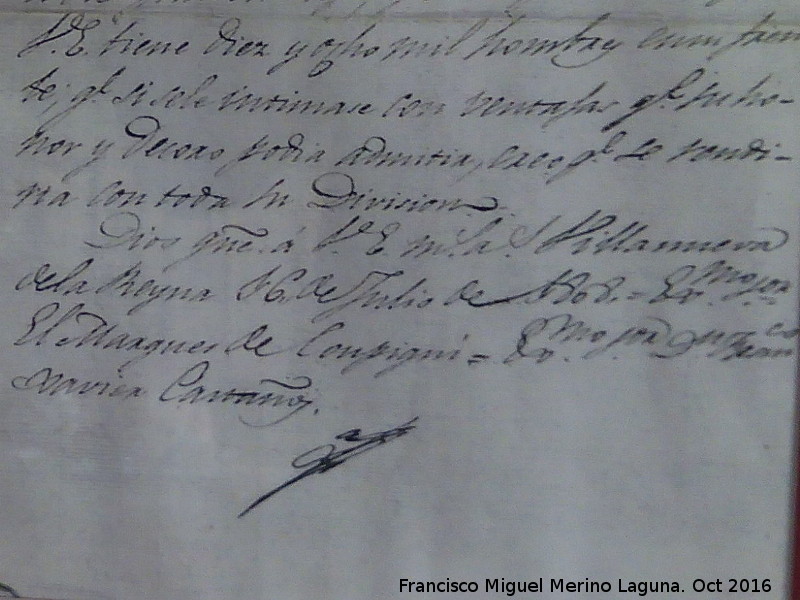 V.E. tiene diez y ocho mil hombres en su fren-
te, q.e si se le intimase con ventajas q.e su ho-
nor y Decoro podia admitir, creo q.e se rendi-
ria con toda su Division.
Dios gue. á V.E. m.s a.s Villanueva
de la Reyna 16 de Julio de 1808. = Ex.mo Sor.
El Marques de Coupigni = Ex.mo Sor. Dn. Fran.co
Xavier Castaños.
Francisco Miguel Merino Laguna. Oct 2016